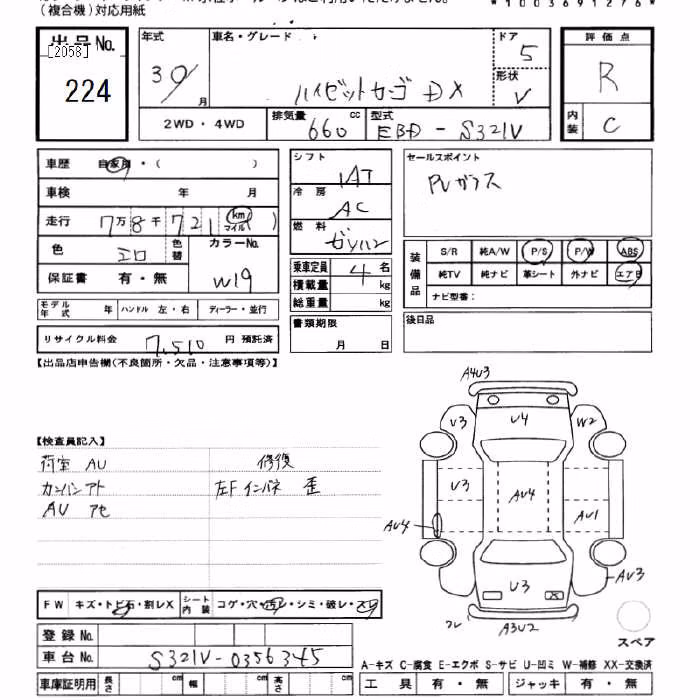 (複合機)対応用紙
*1003691276*
出品No.
[2058]
224
年式
30/
月
車名・グレード
ハイゼットカーゴ DX
ドア
5
形状
V
2WD・4WD
排気量
660
cc
型式
EBD-S321V
評価点
R
内装
C
車歴 自家用・( )
車検 年 月
走行 7万8千721 (km マイル)
色 シロ
色替
カラーNo.
W19
保証書 有・無
モデル年式 年 ハンドル 左・右 ディーラー・並行
リサイクル料金 7,510 円 預託済
シフト
IAT
冷房
AC
燃料
ガソリン
乗車定員 4 名
積載量 kg
総重量 kg
書類期限
月 日
セールスポイント
PVガラス
装備品
S/R 純A/W P/S P/W ABS
純TV 純ナビ 革シート 外ナビ エアB
ナビ型番:
後日品
【出品店申告欄(不良箇所・欠品・注意事項等)】
【検査員記入】
荷室 AU 修復
カンバンアト 左Fインパネ 歪
AU アセ
A4U3
U3 U4 W2
U3 AU4 AU1
AU4
U3 AU3
フレ A3U2
スペア
FW キズ・トビ石・割レX シート内装 コゲ・穴・汚レ・シミ・破レ・スレ
登録No.
車台No. S321V-0356345
車庫証明用 長さ cm 幅 cm 高さ cm
A-キズ C-腐食 E-エクボ S-サビ U-凹ミ W-補修 XX-交換済
工具 有・無 ジャッキ 有・無